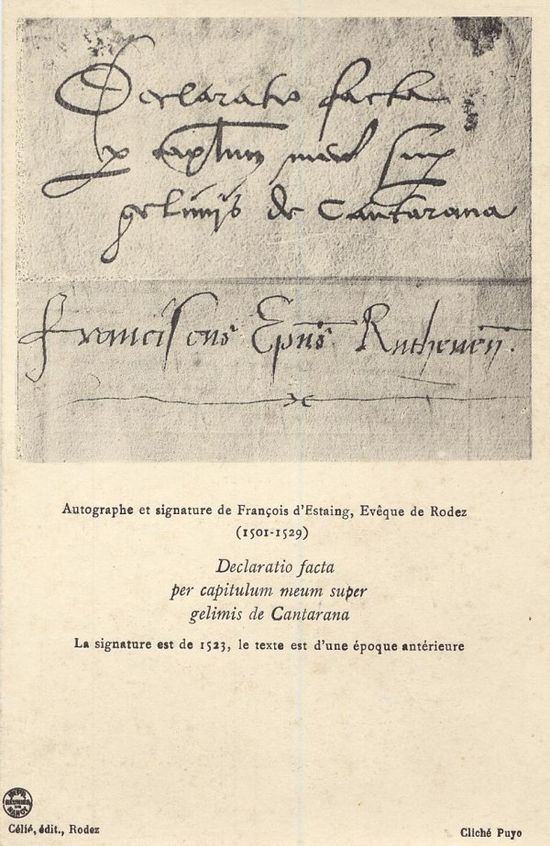 Declaratio facta
p capl'um meū sup
gelimis de Cantarana
Franciscus Ep̄us Rutheneñ.
Autographe et signature de François d'Estaing, Evêque de Rodez
(1501-1529)
Declaratio facta
per capitulum meum super
gelimis de Cantarana
La signature est de 1523, le texte est d'une époque antérieure
IMPR.
RÉUNIES
DE
NANCY
Célié, édit., Rodez
Cliché Puyo